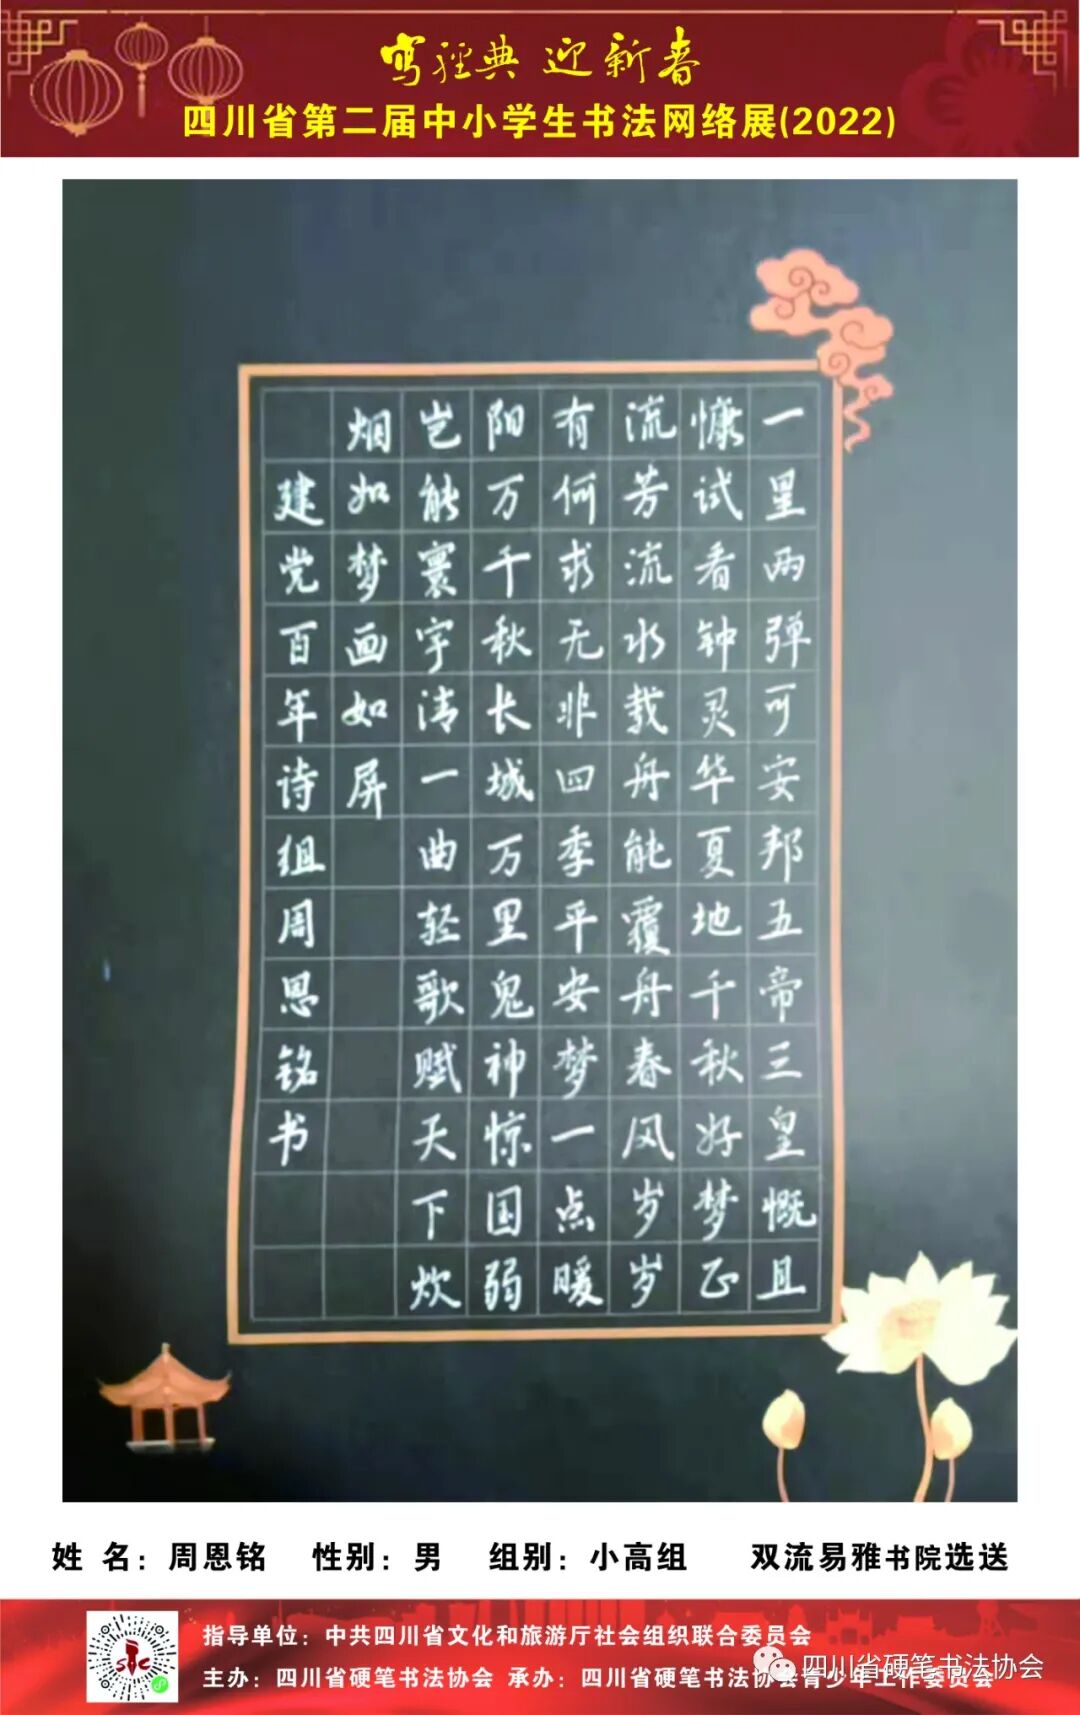 写经典 迎新春
四川省第二届中小学生书法网络展(2022)
一里两弹可安邦五帝三皇慨且
慷试看钟灵华夏地千秋好梦正
流芳流水载舟能覆舟春风岁岁
有何求无非四季平安梦一点暖
阳万千秋长城万里鬼神惊国弱
岂能寰宇清一曲轻歌赋天下炊
烟如梦画如屏
建党百年诗组周恩铭书
姓 名：周恩铭 性别：男 组别：小高组 双流易雅书院选送
指导单位：中共四川省文化和旅游厅社会组织联合委员会
主办：四川省硬笔书法协会 承办：四川省硬笔书法协会青少年工作委员会
四川省硬笔书法协会